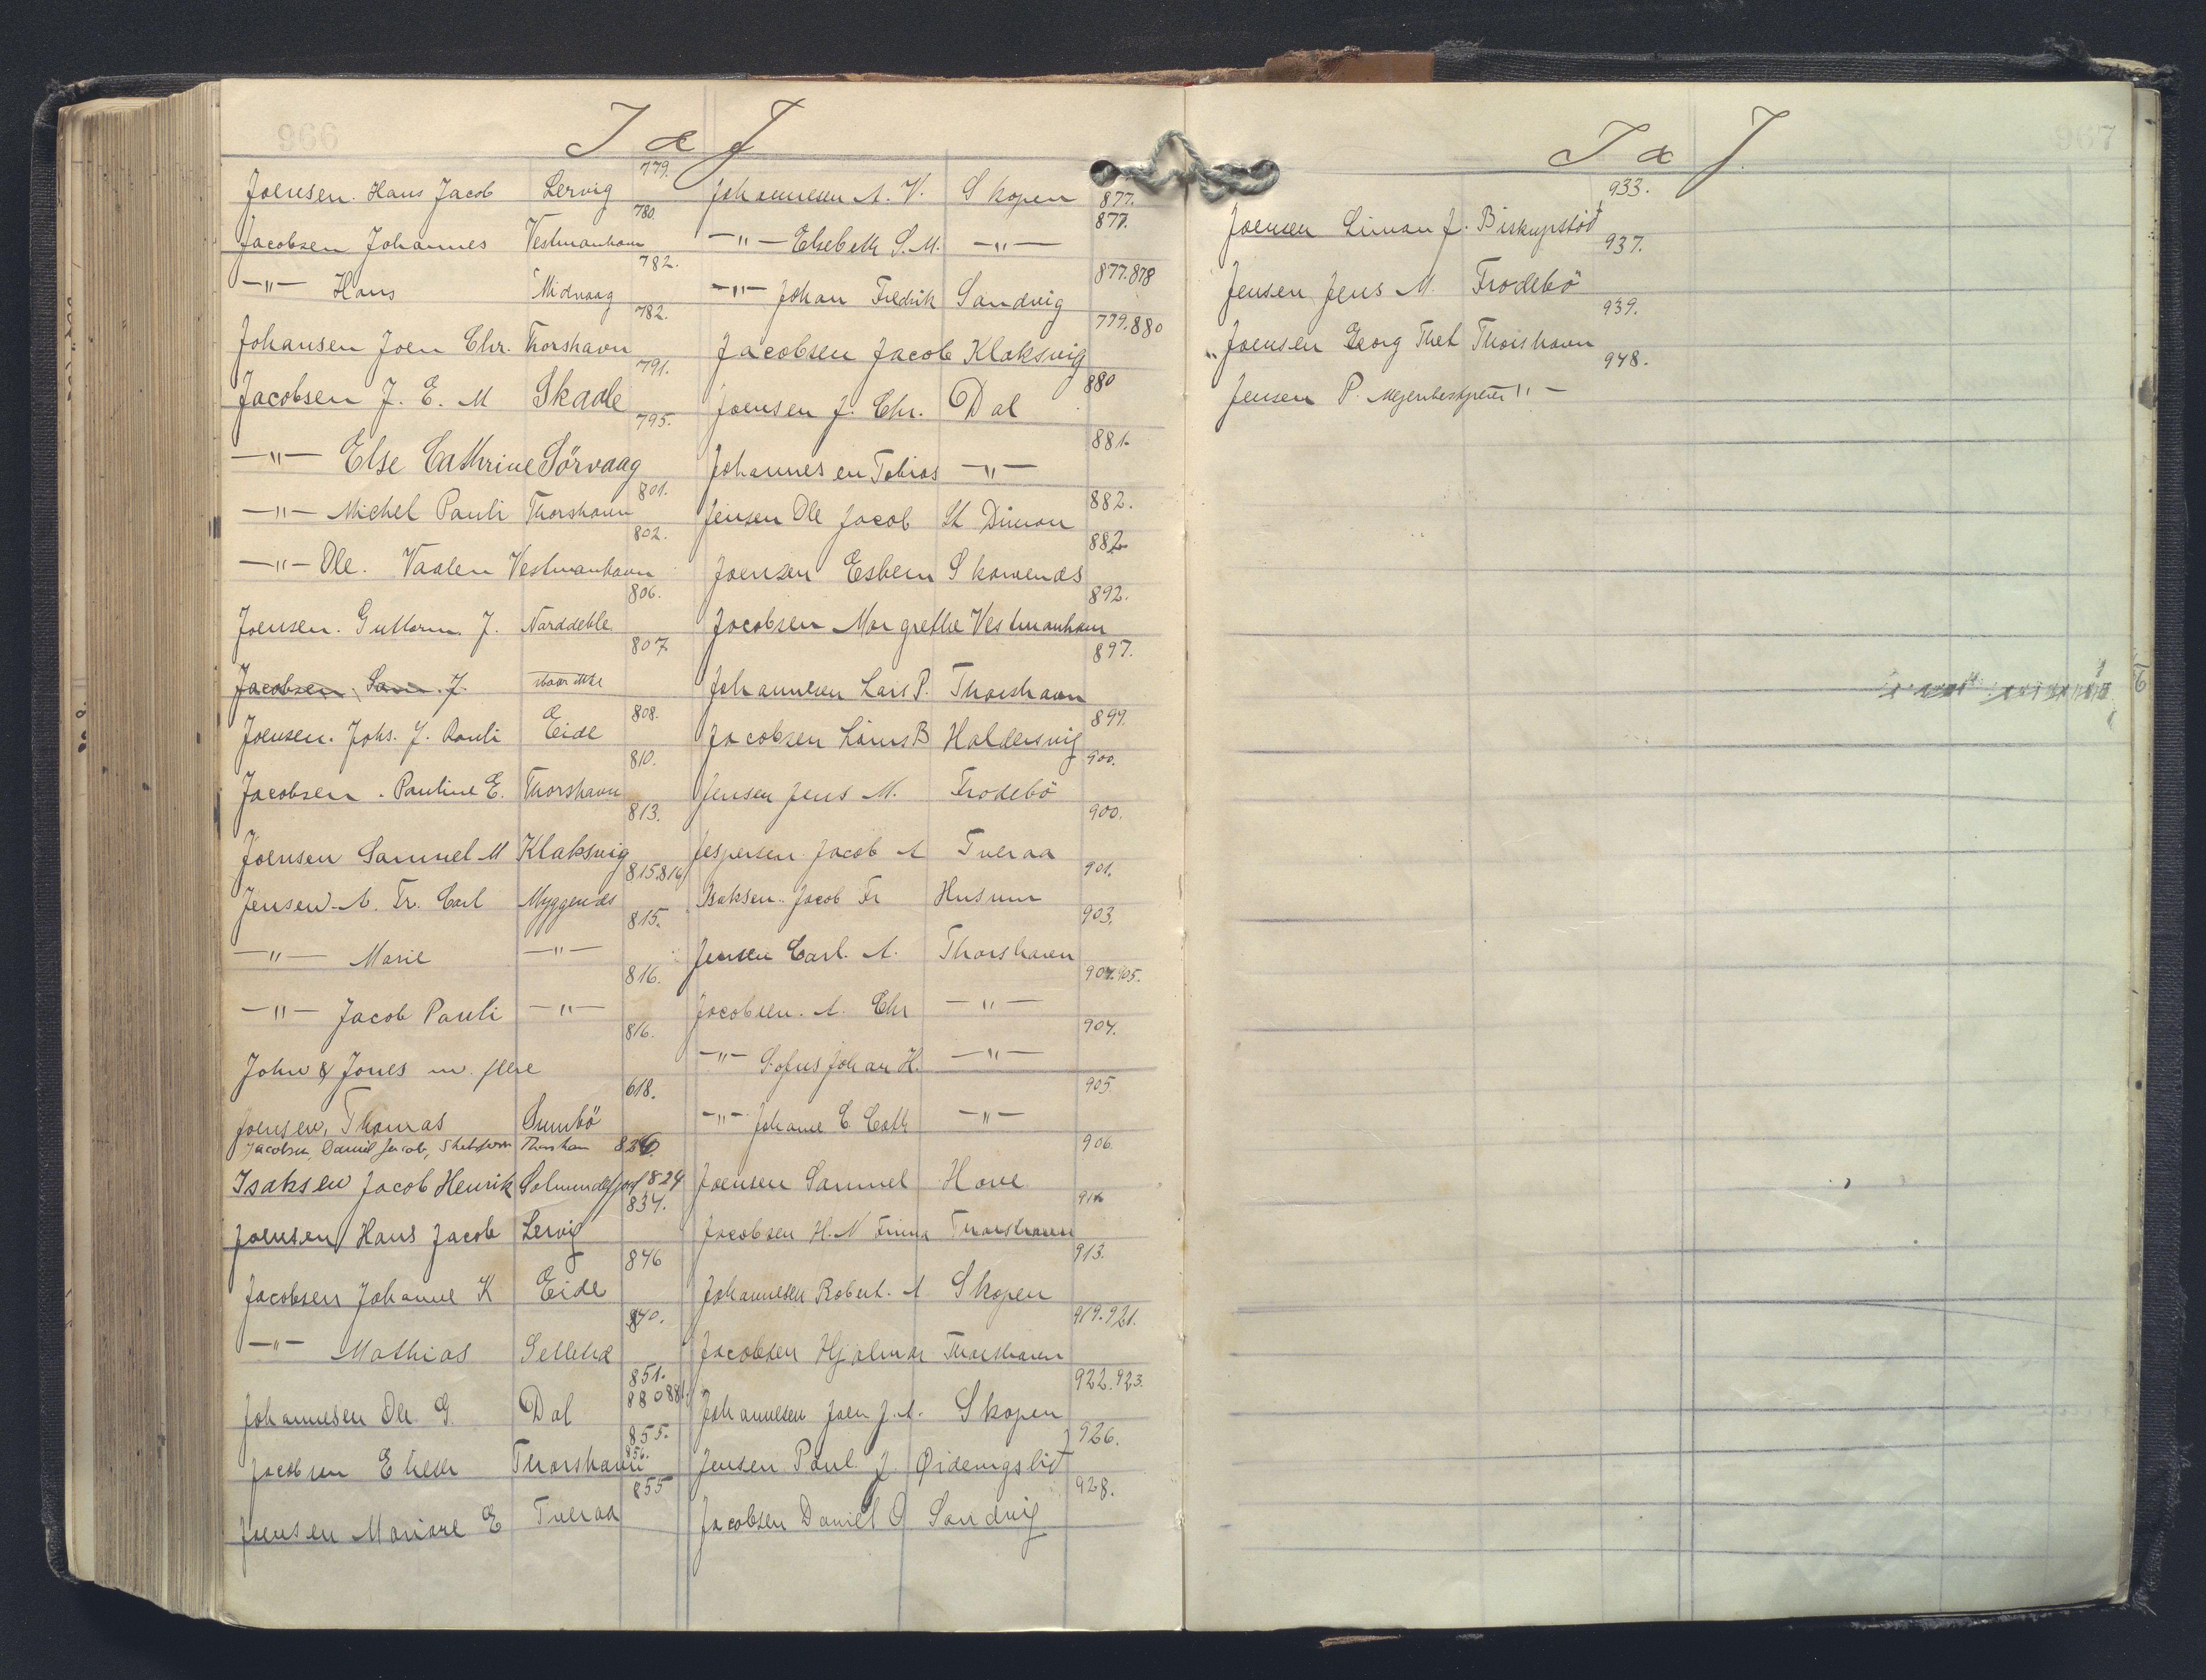 966
I & J
779.
Joensen. Hans Jacob Lervig
780.
Jacobsen Johannes Vestmanhavn
782.
—"— Hans Midvaag
782.
Johansen Joen Chr. Thorshavn
791.
Jacobsen J. E. M Skaale
795.
—"— Else Cathrine Sörvaag
801.
—"— Michel Pauli Thorshavn
802.
—"— Ole. Vaalen Vestmanhavn
806.
Joensen. Guttorm. J. Norddeble
807
Jacobsen, Sam. J.
808.
Joensen. Johs. J. Pauli Eide
810.
Jacobsen. Pauline E. Thorshavn
813.
Joensen Samuel M Klaksvig
815.816
Jensen A. Fr. Carl Myggenæs
815.
—"— Marie —"—
816.
—"— Jacob Pauli —"—
816.
John & Jones m. flere
618.
Joensen, Thomas Sumbö
Jacobsen, Daniel Jacob, Thorshavn
Isaksen Jacob Henrik Solmundefjord 824
834.
Joensen Hans Jacob Lervig
846
Jacobsen Johanne K Eide
840.
—"— Mathias Selletræ
851.
880 881.
Johannesen Ole. G. Dal
855.
856.
Jacobsen Elieser Thorshavn
855
Joensen Mariane E Tveraa
Johannesen A. V. Skopen 877.
877.
—"— Elsebeth S. M. —"—
877.878
—"— Johan Fredrik Sandvig
779.880
Jacobsen Jacob Klaksvig
880
Joensen J. Chr. Dal
881.
Johannesen Tobias —"—
882.
Jensen Ole Jacob St Dimon
882
Joensen Esbern Skorvenæs
892.
Jacobsen Margrethe Vestmanhavn
897.
Johannesen Lars P. Thorshavn
899.
Jacobsen Liams B Haldersvig
900.
Jensen Jens M. Frodebö
900.
Jespersen Jacob A Tveraa
901.
Isaksen. Jacob Fr Husum
903.
Jensen Carl. A. Thorshavn
904.905.
Jacobsen. A. Chr —"—
904.
—"— Sofus Johan H. —"—
905
—"— Johanne E. Cath —"—
906.
Joensen Samuel Hove
Jacobsen H. N Firma Thorshavn
913.
Johannesen Robert. A Skopen
919.921.
Jacobsen Hjalmar Thorshavn
922.923.
Johannesen Joen J. A. Skopen
926.
Jensen Poul. J. Øidemgslid
928.
Jacobsen Daniel O Sandvig
967
I & J.
933.
Joensen Simon J. Biskupstöd
937.
Jensen Jens M. Frodebö
939.
Joensen Georg Thet Thorshavn
948.
Jensen P. Mejeribestyrer "—